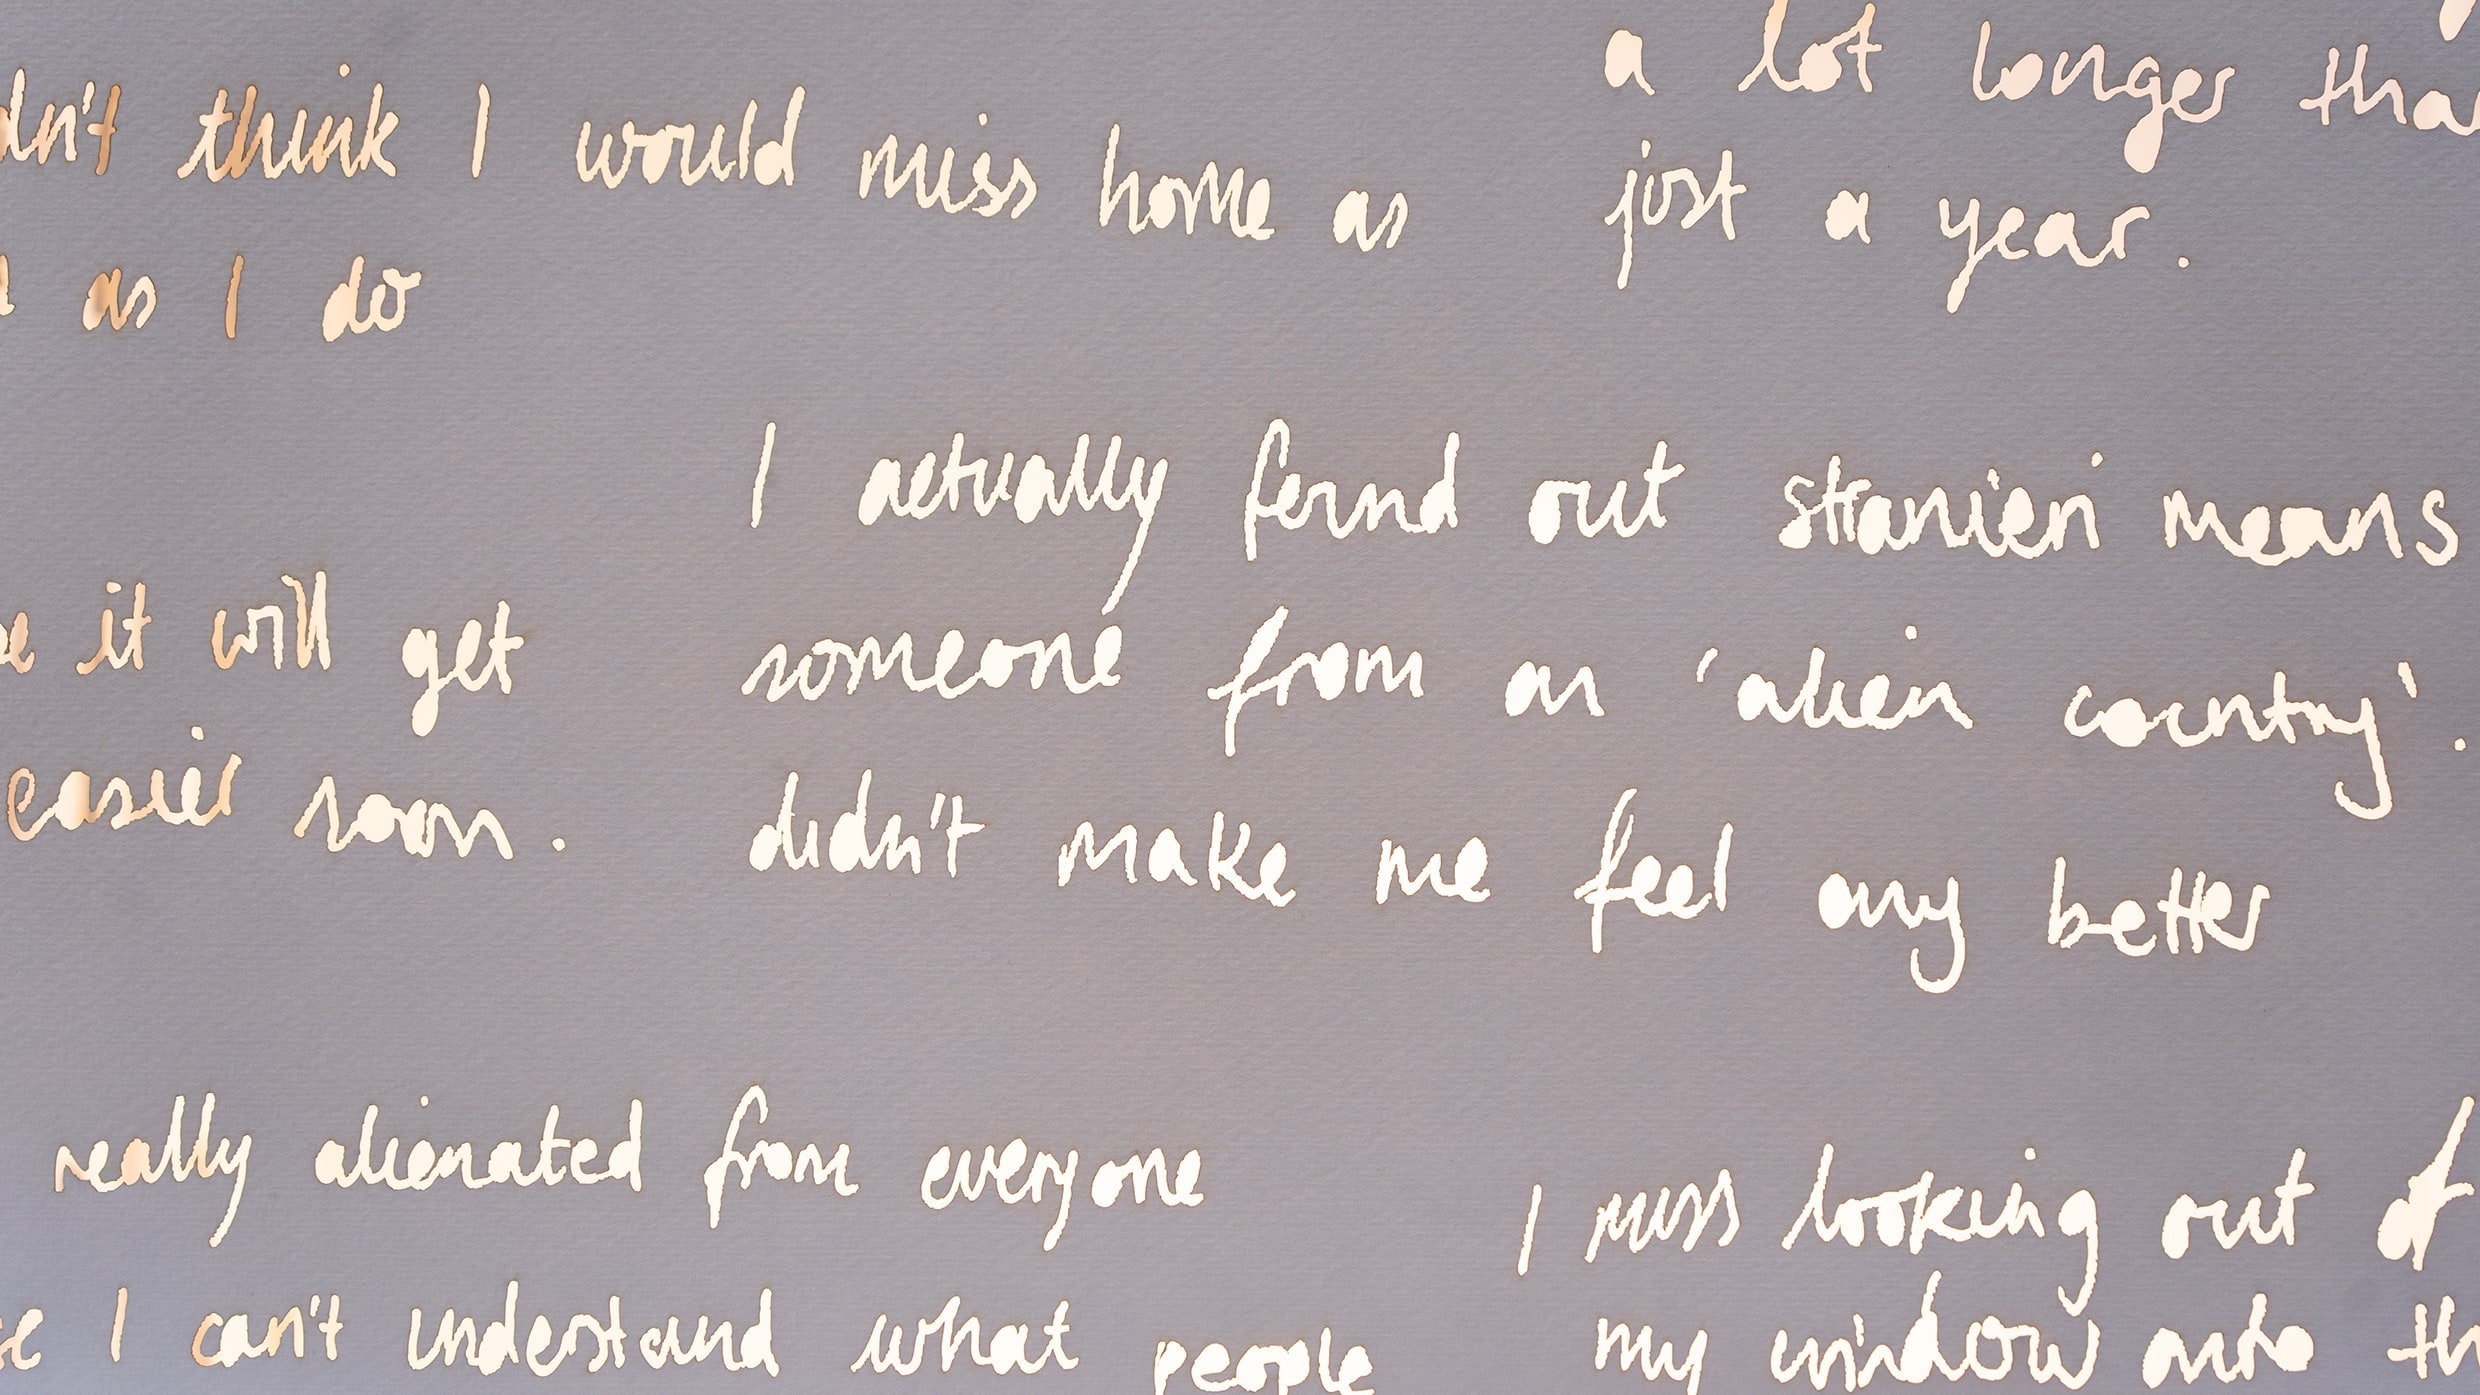 dn't think I would miss home as
as I do
a lot longer tha
just a year.
I actually found out stranieri means
someone from an 'alien country'.
didn't make me feel any better
e it will get
easier soon.
really alienated from everyone
se I can't understand what people
I miss looking out of
my window onto th